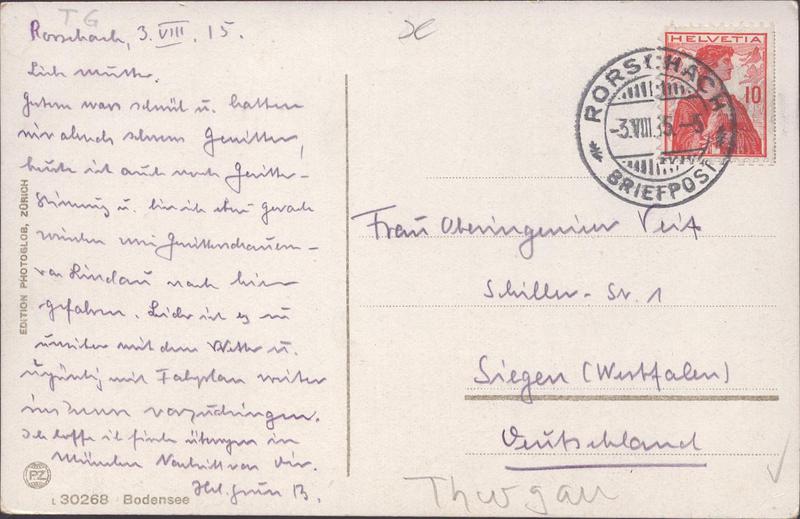 TG
Rorschach, 3. VIII. 15.
Lieb Mutter.
Gestern war's schwül u. hatten
wir abends schweres Gewitter,
heute ist auch noch Gewitter-
stimmung u. bin ich eben gerade
von Lindau nach hier
gefahren. Leider ist es zu
unsicher mit dem Wetter u.
mit Fahrplan weiter
Ich hoffe ich finde übrigens in
München Nachricht von Dir.
Herzl. Gruss B.
EDITION PHOTOGLOB, ZÜRICH
PZ
L 30268 Bodensee
HELVETIA
10
RORSCHACH
-3.VIII.15.-5
BRIEFPOST
Frau Oberingenieur Veit
Schiller-Str. 1
Siegen (Westfalen)
Deutschland
Thurgau